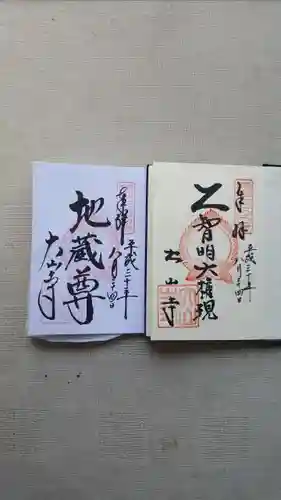 奉拝
平成三十年
八月二十四日
智明大権現
大山寺
奉拝
平成三十年
八月二十四日
地蔵尊
大山寺